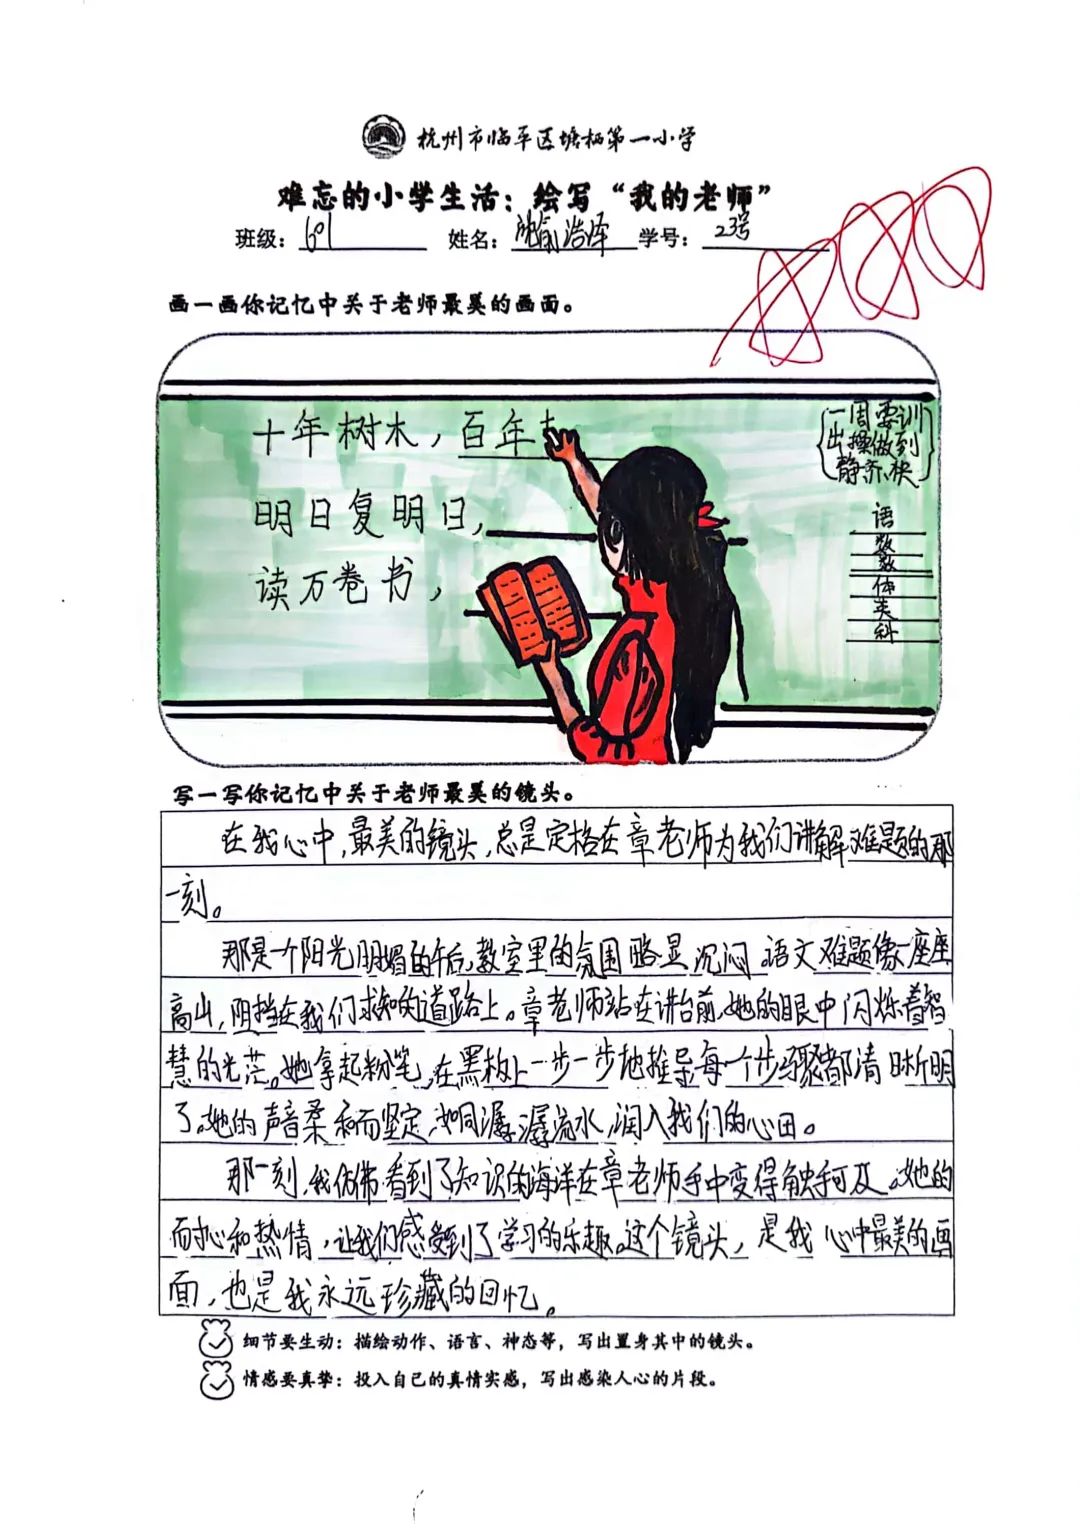 杭州市临平区塘栖第一小学
难忘的小学生活：绘写“我的老师”
班级：601 姓名：沈俞浩泽 学号：23号
画一画你记忆中关于老师最美的画面。
十年树木，百年
明日复明日，
读万卷书，
一周要训
出操做到
静、齐、快
语
数
数
体
英
科
写一写你记忆中关于老师最美的镜头。
在我心中，最美的镜头，总是定格在章老师为我们讲解难题的那
一刻。
那是一个阳光明媚的午后，教室里的氛围略显沉闷。语文难题像一座座
高山，阻挡在我们求知的道路上。章老师站在讲台前，她的眼中闪烁着智
慧的光茫。她拿起粉笔，在黑板上一步一步地推导，每一个步骤都清晰明
了。她的声音柔和而坚定，如同潺潺流水，润入我们的心田。
那一刻，我仿佛看到了知识的海洋在章老师手中变得触手可及。她的
耐心和热情，让我们感受到了学习的乐趣。这个镜头，是我心中最美的画
面，也是我永远珍藏的回忆。
细节要生动：描绘动作、语言、神态等，写出置身其中的镜头。
情感要真挚：投入自己的真情实感，写出感染人心的片段。